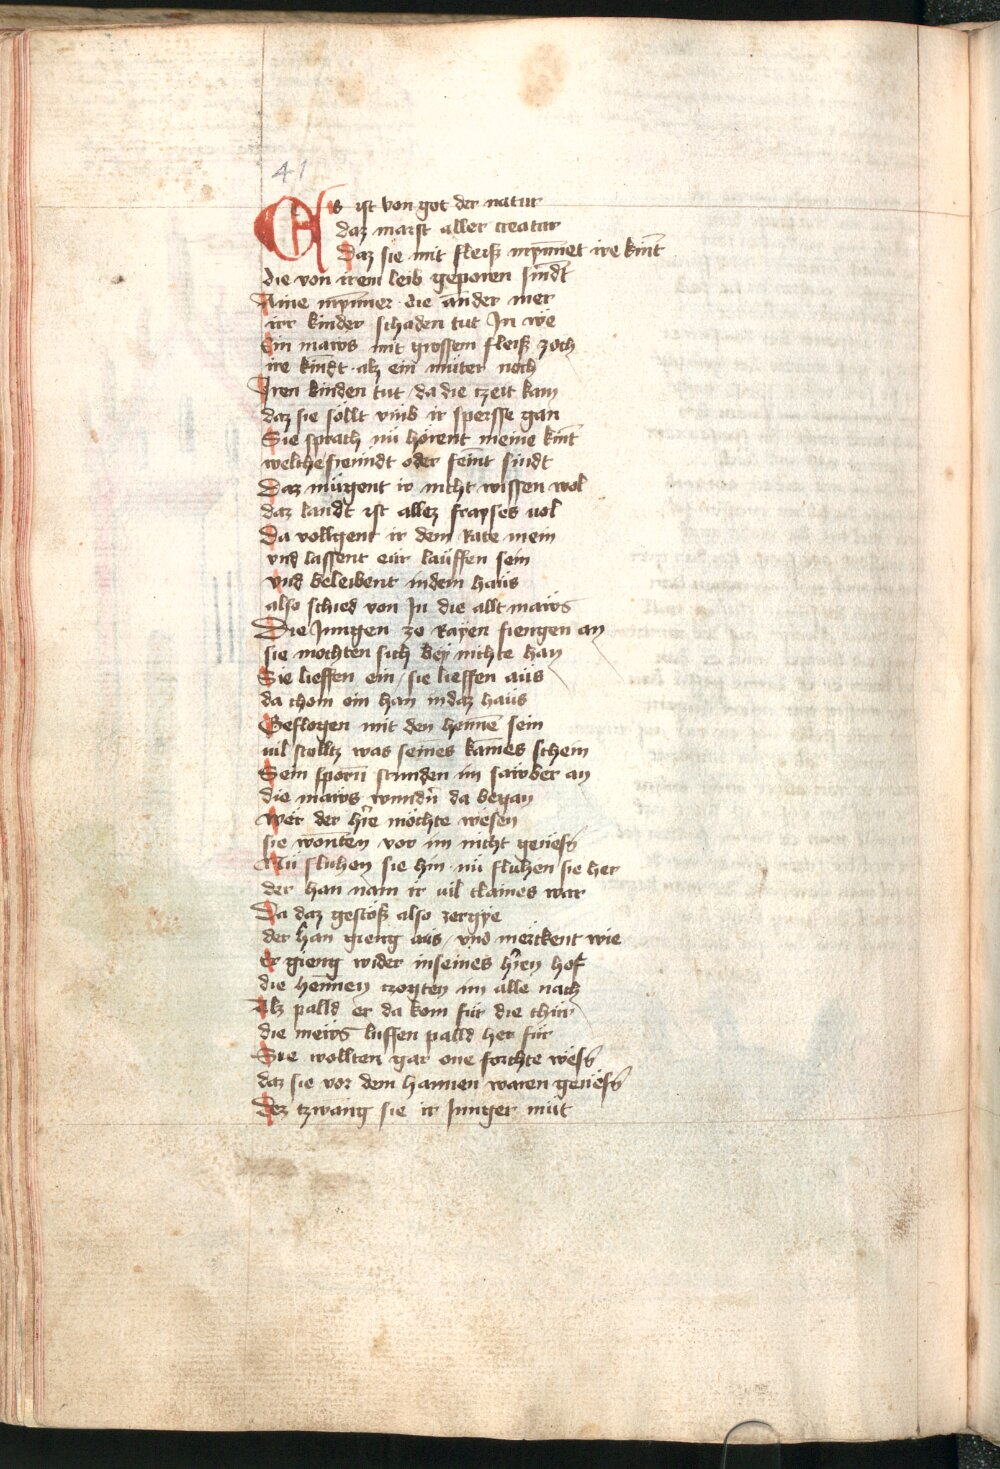 41
Es ist von got der natur
daz maist aller creatur
Daz sie mit fleiß mynnet ire kint
die von irem leib geporen sindt
Aine mynner die ander mer
irr kinder schaden tut In we
Ein maws mit grossem fleiß zoch
ire kindt alz ein müter noch
Iren kinden tut / da die czeit kam
daz sie söllt vmb ir speisse gan
Sie sprach nü hörent meine kint
welche freündt oder feint sindt
Daz mügent ir nicht wissen wol
daz landt ist allez frayses uol
Da vollgent ir dem Rate mein
vnd lassent eür lauffen sein
vnd beleibent indem haüs
also schied von In die allt maws
Die Jungen ze Rayen fiengen an
sie mochten sich bey nichte han
Sie lieffen ein / sie lieffen aüs
da chom ein han in daz haüs
Geflogen mit den hennē sein
uil stolltz was seines kames schein
Sein sporn̄ stunden im sawber an
die maws wundn̄ da began
Wer der hre möchte wesen
sie wonten vor im nicht genesn̄
Nü fluhen sie hin nü fluhen sie her
der han nam ir uil claines war
Da daz gestöß also zergye
der han gieng aüs / vnd merckent wie
Er gieng wider in seines hren hof
die hennen czogten im alle nach
Alz palld er da kom für die thür
die mews luffen palld her für
Sie wollten gar one forchte wesn̄
daz sie vor dem hannen waren genesn̄
Dez tzwang sie ir Junger müt